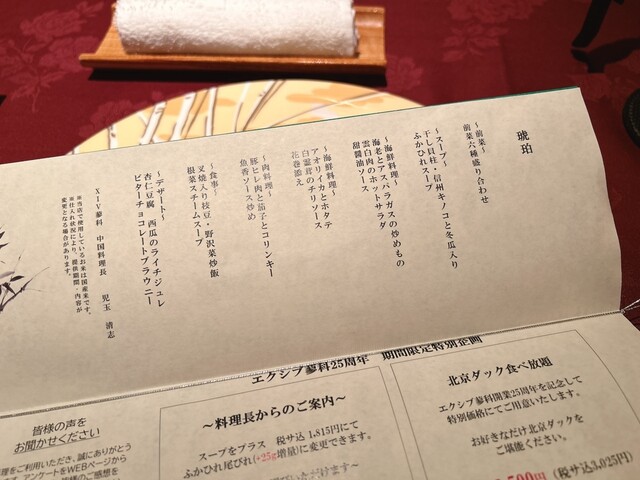 琥珀
～前菜～
前菜六種盛り合わせ
～スープ～
干し貝柱・信州キノコと冬瓜入り
ふかひれスープ
～海鮮料理～
海老とアスパラガスの炒めもの
雲白肉のホットサラダ
甜醤油ソース
～海鮮料理～
アオリイカとホタテ
白霊茸のチリソース
花巻添え
～肉料理～
豚ヒレ肉と茄子とコリンキー
魚香ソース炒め
～食事～
叉焼入り枝豆・野沢菜炒飯
根菜スチームスープ
～デザート～
杏仁豆腐 西瓜のライチジュレ
ビターチョコレートブラウニー
XIV蓼科 中国料理長 児玉 清志
※当店で使用しているお米は国産米です。
※仕入れ状況により、提供期間・内容が
変更となる場合があります。
エクシブ蓼科25周年 期間限定特別企画
皆様の声を
お聞かせください
をご利用いただき、誠にありがとう
す。アンケートをWEBページから
皆様のご感想を
～料理長からのご案内～
スープをプラス 税サ込 1,815円にて
ふかひれ尾びれ(+25g増量)に変更できます。
北京ダック食べ放題
エクシブ蓼科開業25周年を記念して
特別価格にてご用意いたします。
お好きなだけ北京ダックを
ご堪能ください。
500円 (税サ込3,025円)